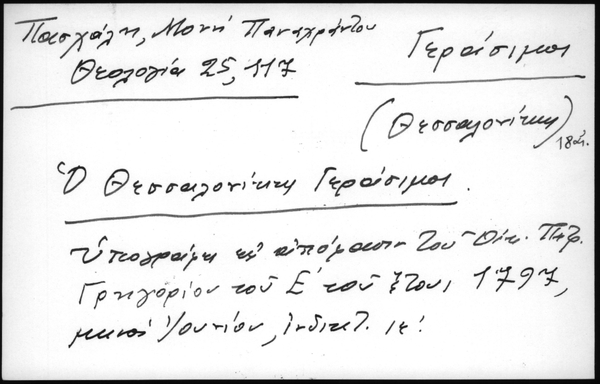 Πασχάλη, Μονή Παναχράντου
Θεολογία 25, 117
Γεράσιμος
(Θεσσαλονίκης)
18 αἰ.
Ὁ Θεσσαλονίκης Γεράσιμος.
Ὑπογράφει εἰς ἀπόφασιν τοῦ Οἰκ. Πατρ.
Γρηγορίου τοῦ Ε΄ τοῦ ἔτους 1797,
μηνός Ἰουνίου, ἰνδικτ. ιε΄.